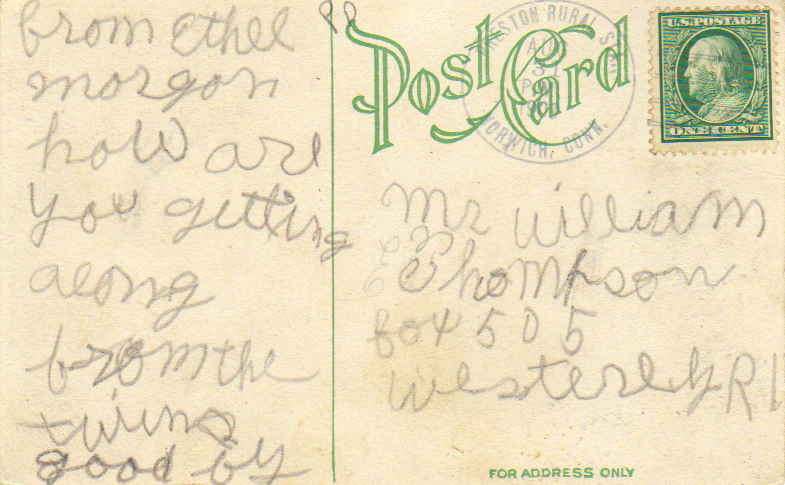 from Ethel
morgon
how are
you getting
along
from the
twins
good by
Post Card
RURAL
NORWICH, CONN.
U.S. POSTAGE
ONE CENT
Mr William
Thompson
box 505
westerly R I
FOR ADDRESS ONLY